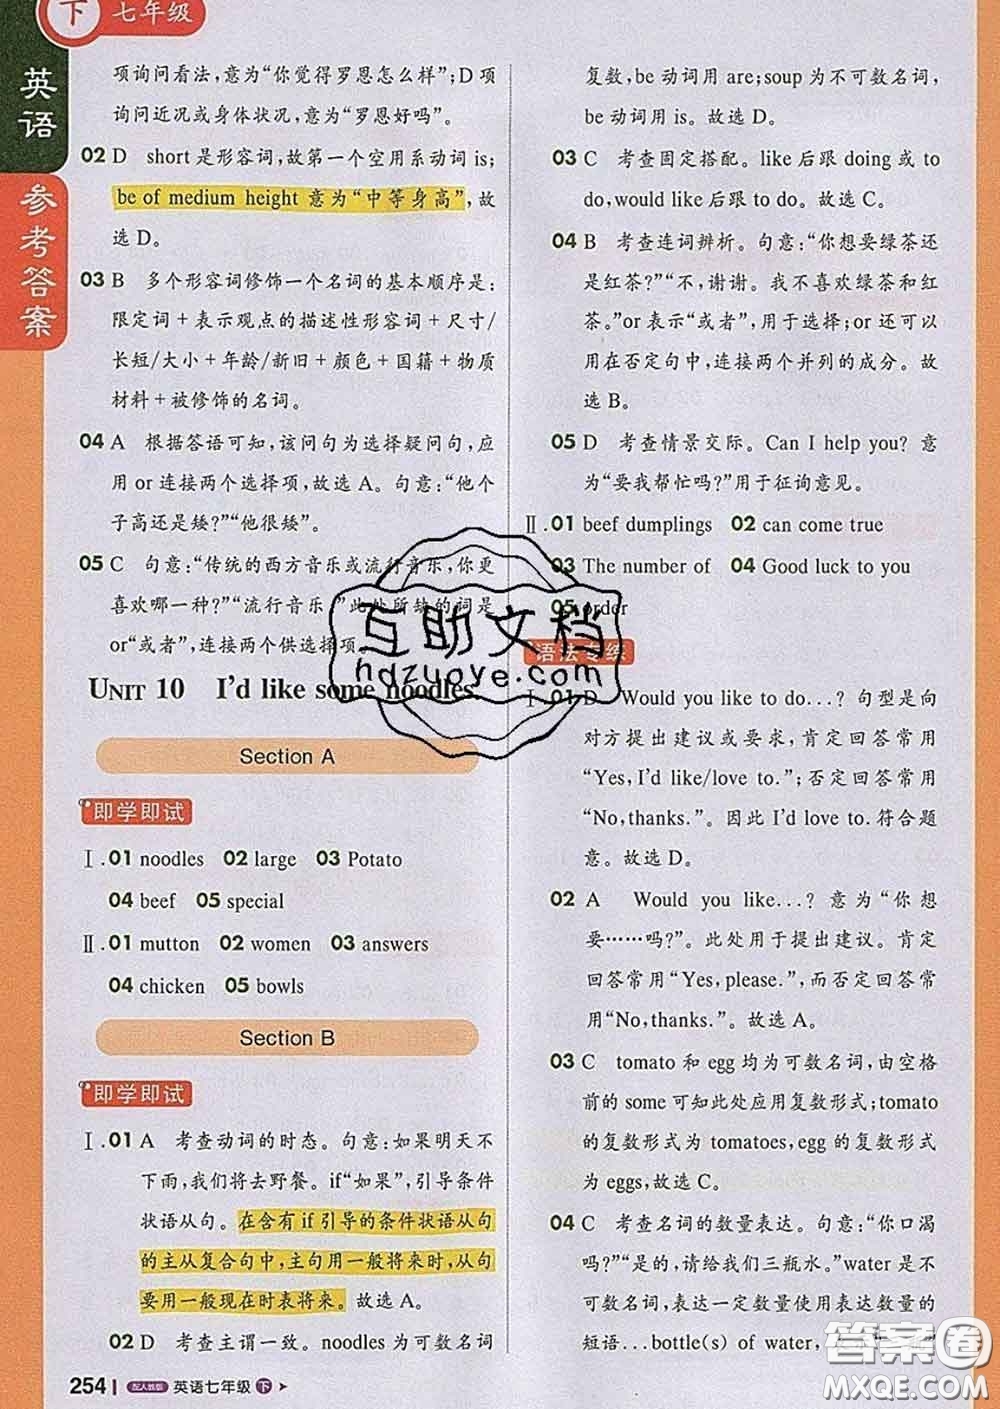 下 七年级
英语
参考答案
项询问看法,意为“你觉得罗恩怎么样”;D 项
询问近况或身体状况,意为“罗恩好吗”。
02 D short 是形容词,故第一个空用系动词 is;
be of medium height 意为“中等身高”,故
选 D。
03 B 多个形容词修饰一个名词的基本顺序是:
限定词+表示观点的描述性形容词+尺寸/
长短/大小+年龄/新旧+颜色+国籍+物质
材料+被修饰的名词。
04 A 根据答语可知,该问句为选择疑问句,应
用 or 连接两个选择项,故选 A。句意:“他个
子高还是矮?”“他很矮”。
05 C 句意:“传统的西方音乐或流行音乐,你更
喜欢哪一种?”“流行音乐。”此处所缺的词是
or“或者”,连接两个供选择项。
UNIT 10 I’d like some noodles.
Section A
即学即试
Ⅰ.01 noodles 02 large 03 Potato
04 beef 05 special
Ⅱ.01 mutton 02 women 03 answers
04 chicken 05 bowls
Section B
即学即试
Ⅰ.01 A 考查动词的时态。句意:如果明天不
下雨,我们将去野餐。if“如果”,引导条件
状语从句。在含有 if 引导的条件状语从句
的主从复合句中,主句用一般将来时,从句
要用一般现在时表将来。故选 A。
02 D 考查主谓一致。noodles 为可数名词
复数,be 动词用 are;soup 为不可数名词,
be 动词用 is。故选 D。
03 C 考查固定搭配。like 后跟 doing 或 to
do,would like 后跟 to do。故选 C。
04 B 考查连词辨析。句意:“你想要绿茶还
是红茶?”“不,谢谢。我不喜欢绿茶和红
茶。”or 表示“或者”,用于选择;or 还可以
用在否定句中,连接两个并列的成分。故
选 B。
05 D 考查情景交际。Can I help you? 意
为“要我帮忙吗?”用于征询意见。
Ⅱ.01 beef dumplings 02 can come true
03 The number of 04 Good luck to you
05 order
语法专练
Ⅰ.01 D Would you like to do...? 句型是向
对方提出建议或要求,肯定回答常用
“Yes,I’d like/love to.”;否定回答常用
“No,thanks.”。因此 I’d love to.符合题
意。故选 D。
02 A Would you like...? 意为“你想
要……吗?”。此处用于提出建议。肯定
回答常用“Yes,please.”,而否定回答常
用“No,thanks.”。故选 A。
03 C tomato 和 egg 均为可数名词,由空格
前的 some 可知此处应用复数形式;tomato
的复数形式为 tomatoes,egg 的复数形式
为 eggs,故选 C。
04 C 考查名词的数量表达。句意:“你口渴
吗?”“是的,请给我们三瓶水。”water 是不
可数名词,表达一定数量使用表达数量的
短语...bottle(s) of water,
254 配人教版 英语七年级 下
互助文档
hdzuoye.com
答案圈
MXQE.COM